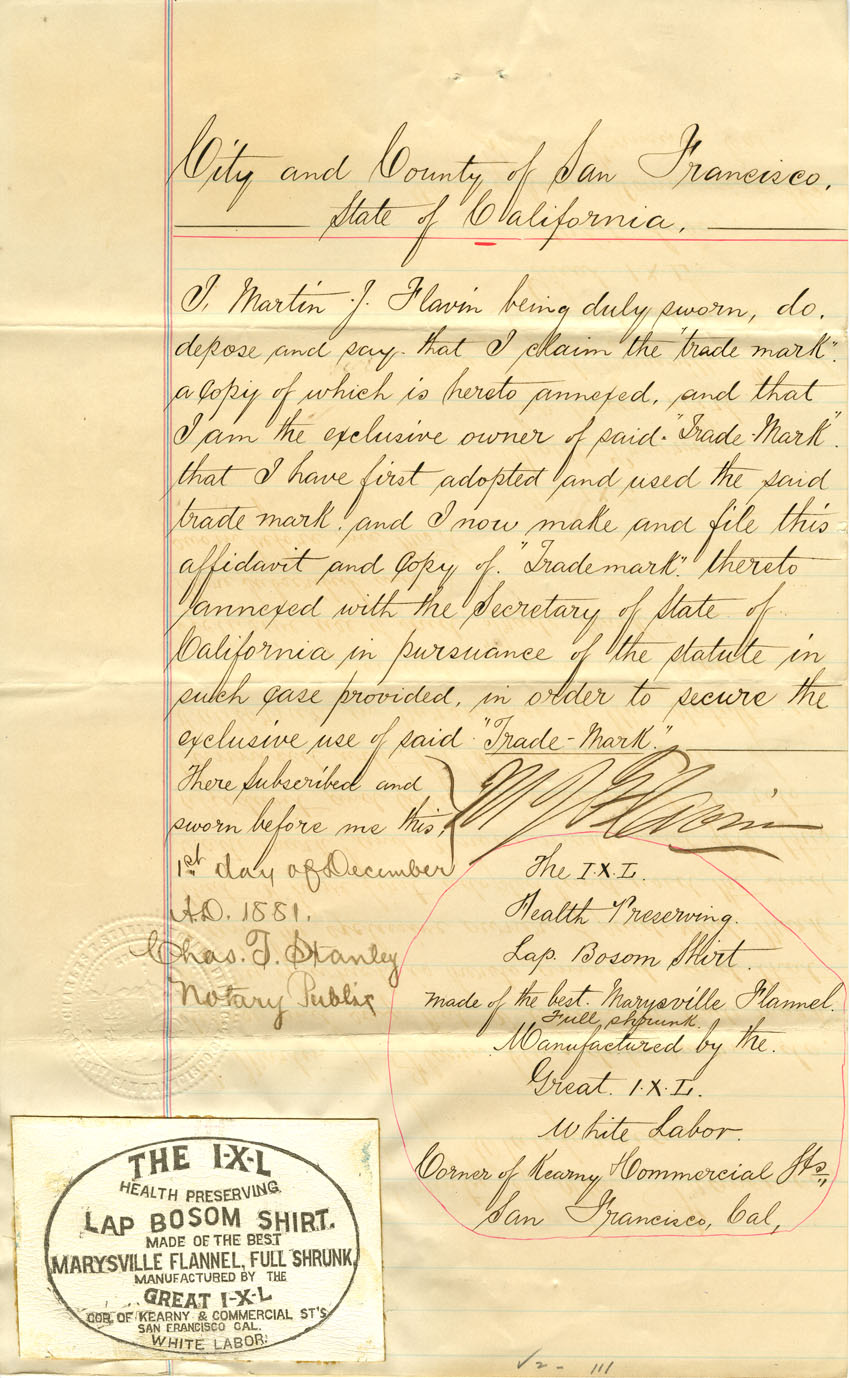 City and County of San Francisco.
State of California.
I, Martin J. Flavin being duly sworn, do.
depose and say. that I claim the "trade mark".
a copy of which is hereto annexed, and that
I am the exclusive owner of said "Trade-Mark".
that I have first adopted and used the said
trade mark. and I now make and file this
affidavit and copy of. "Trademark". thereto
annexed with the Secretary of State of
California in pursuance of the statute in
such case provided, in order to secure the
exclusive use of said "Trade-Mark".
There Subscribed and
sworn before me this,
1st day of December
A.D. 1881.
Chas. T. Stanley
Notary Public
M J Flavin
The I.X.L.
Health Preserving.
Lap. Bosom Shirt.
made of the best. Marysville Flannel.
Full shrunk.
Manufactured by the.
Great. I.X.L.
White Labor.
Corner of Kearny & Commercial Sts,,
San Francisco, Cal,
THE I-X-L
HEALTH PRESERVING
LAP BOSOM SHIRT.
MADE OF THE BEST
MARYSVILLE FLANNEL, FULL SHRUNK,
MANUFACTURED BY THE
GREAT I-X-L
COR. OF KEARNY & COMMERCIAL ST'S.
SAN FRANCISCO CAL.
WHITE LABOR.